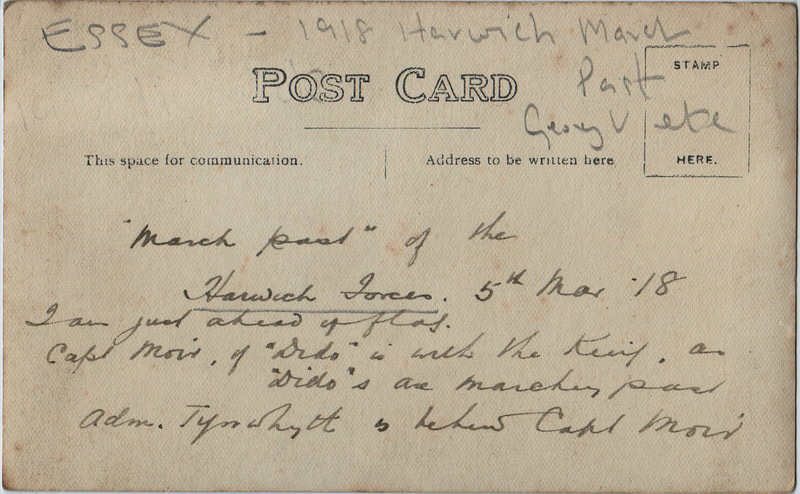 ESSEX - 1918 Harwich March
Past
George V etc
POST CARD
STAMP
HERE.
This space for communication.
Address to be written here
"March past" of the
Harwich Forces. 5th Mar '18
I am just ahead of flag.
Capt Moir, of "Dido" is with the King, as
"Dido"s are marching past
Adm. Tyrrwhytt is behind Capt Moir